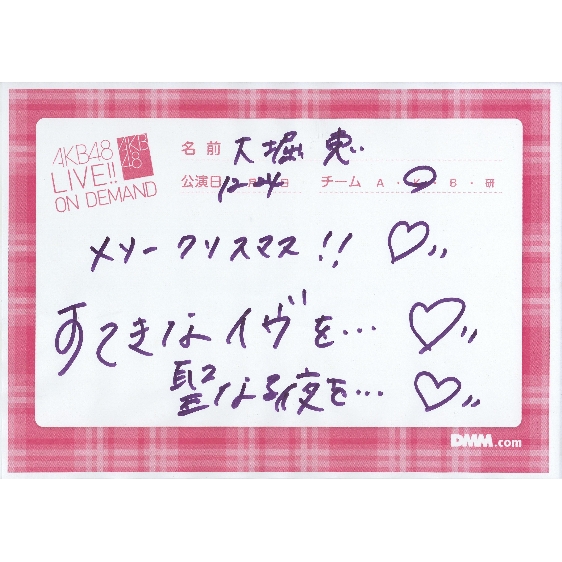 AKB48
LIVE!!
ON DEMAND
AKB
48
名前 大堀 恵
公演日 12月24日 チーム A・K・B・研
メリークリスマス!! ♡
すてきなイヴを… ♡
聖なる夜を… ♡
DMM.com